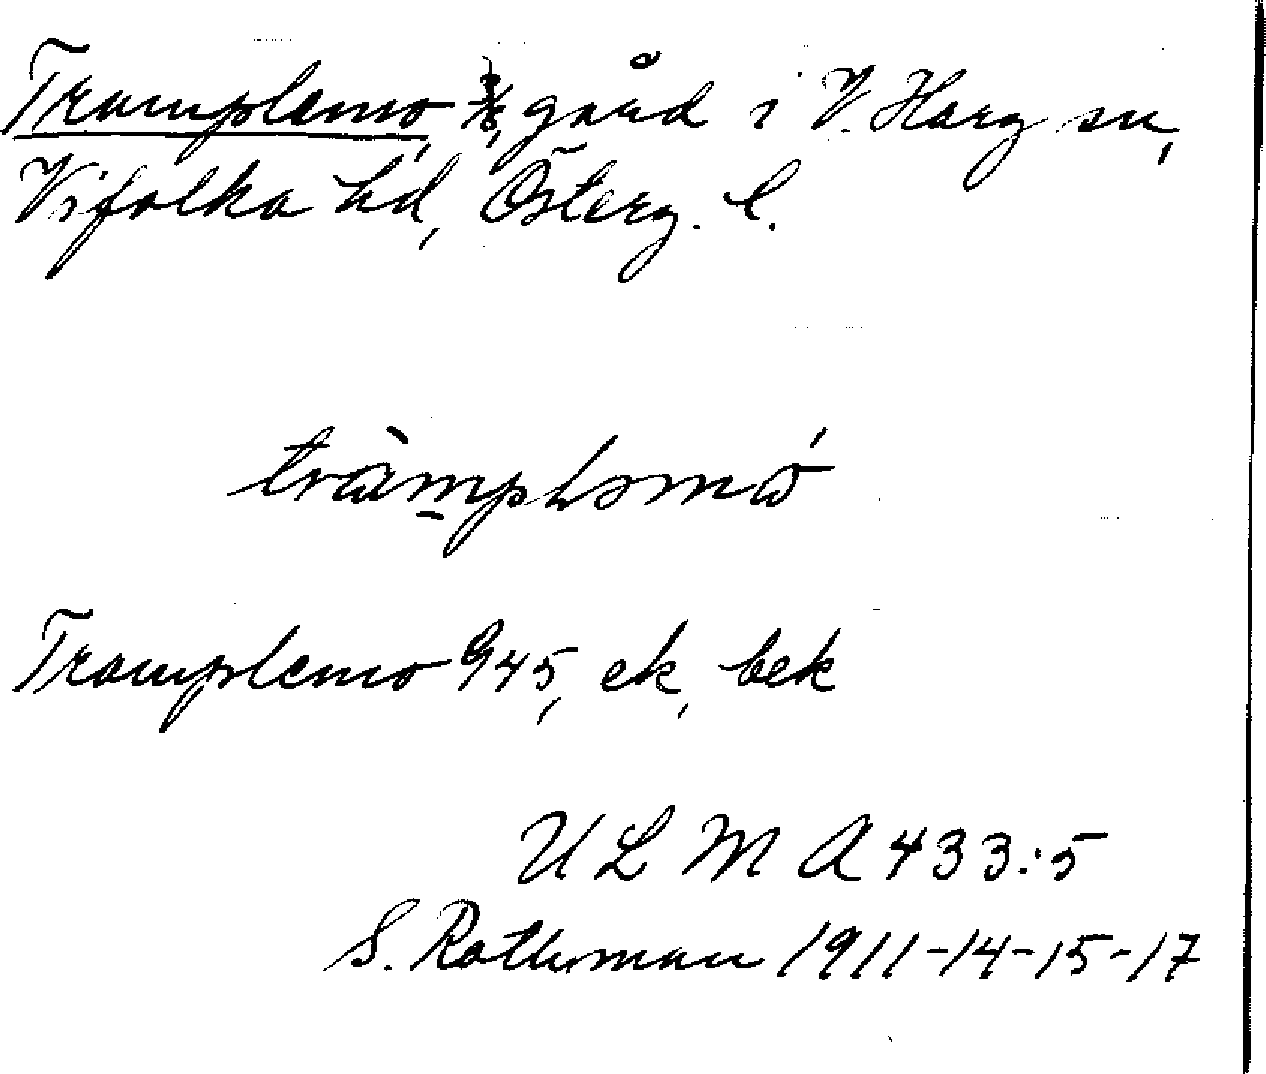 Tramplemo, gård i V. Harg sn,
Vifolka hd, Österg. l.
Tramplemo 945, ek, bek
U L M A 433:5
S. Rothman 1911-14-15-17